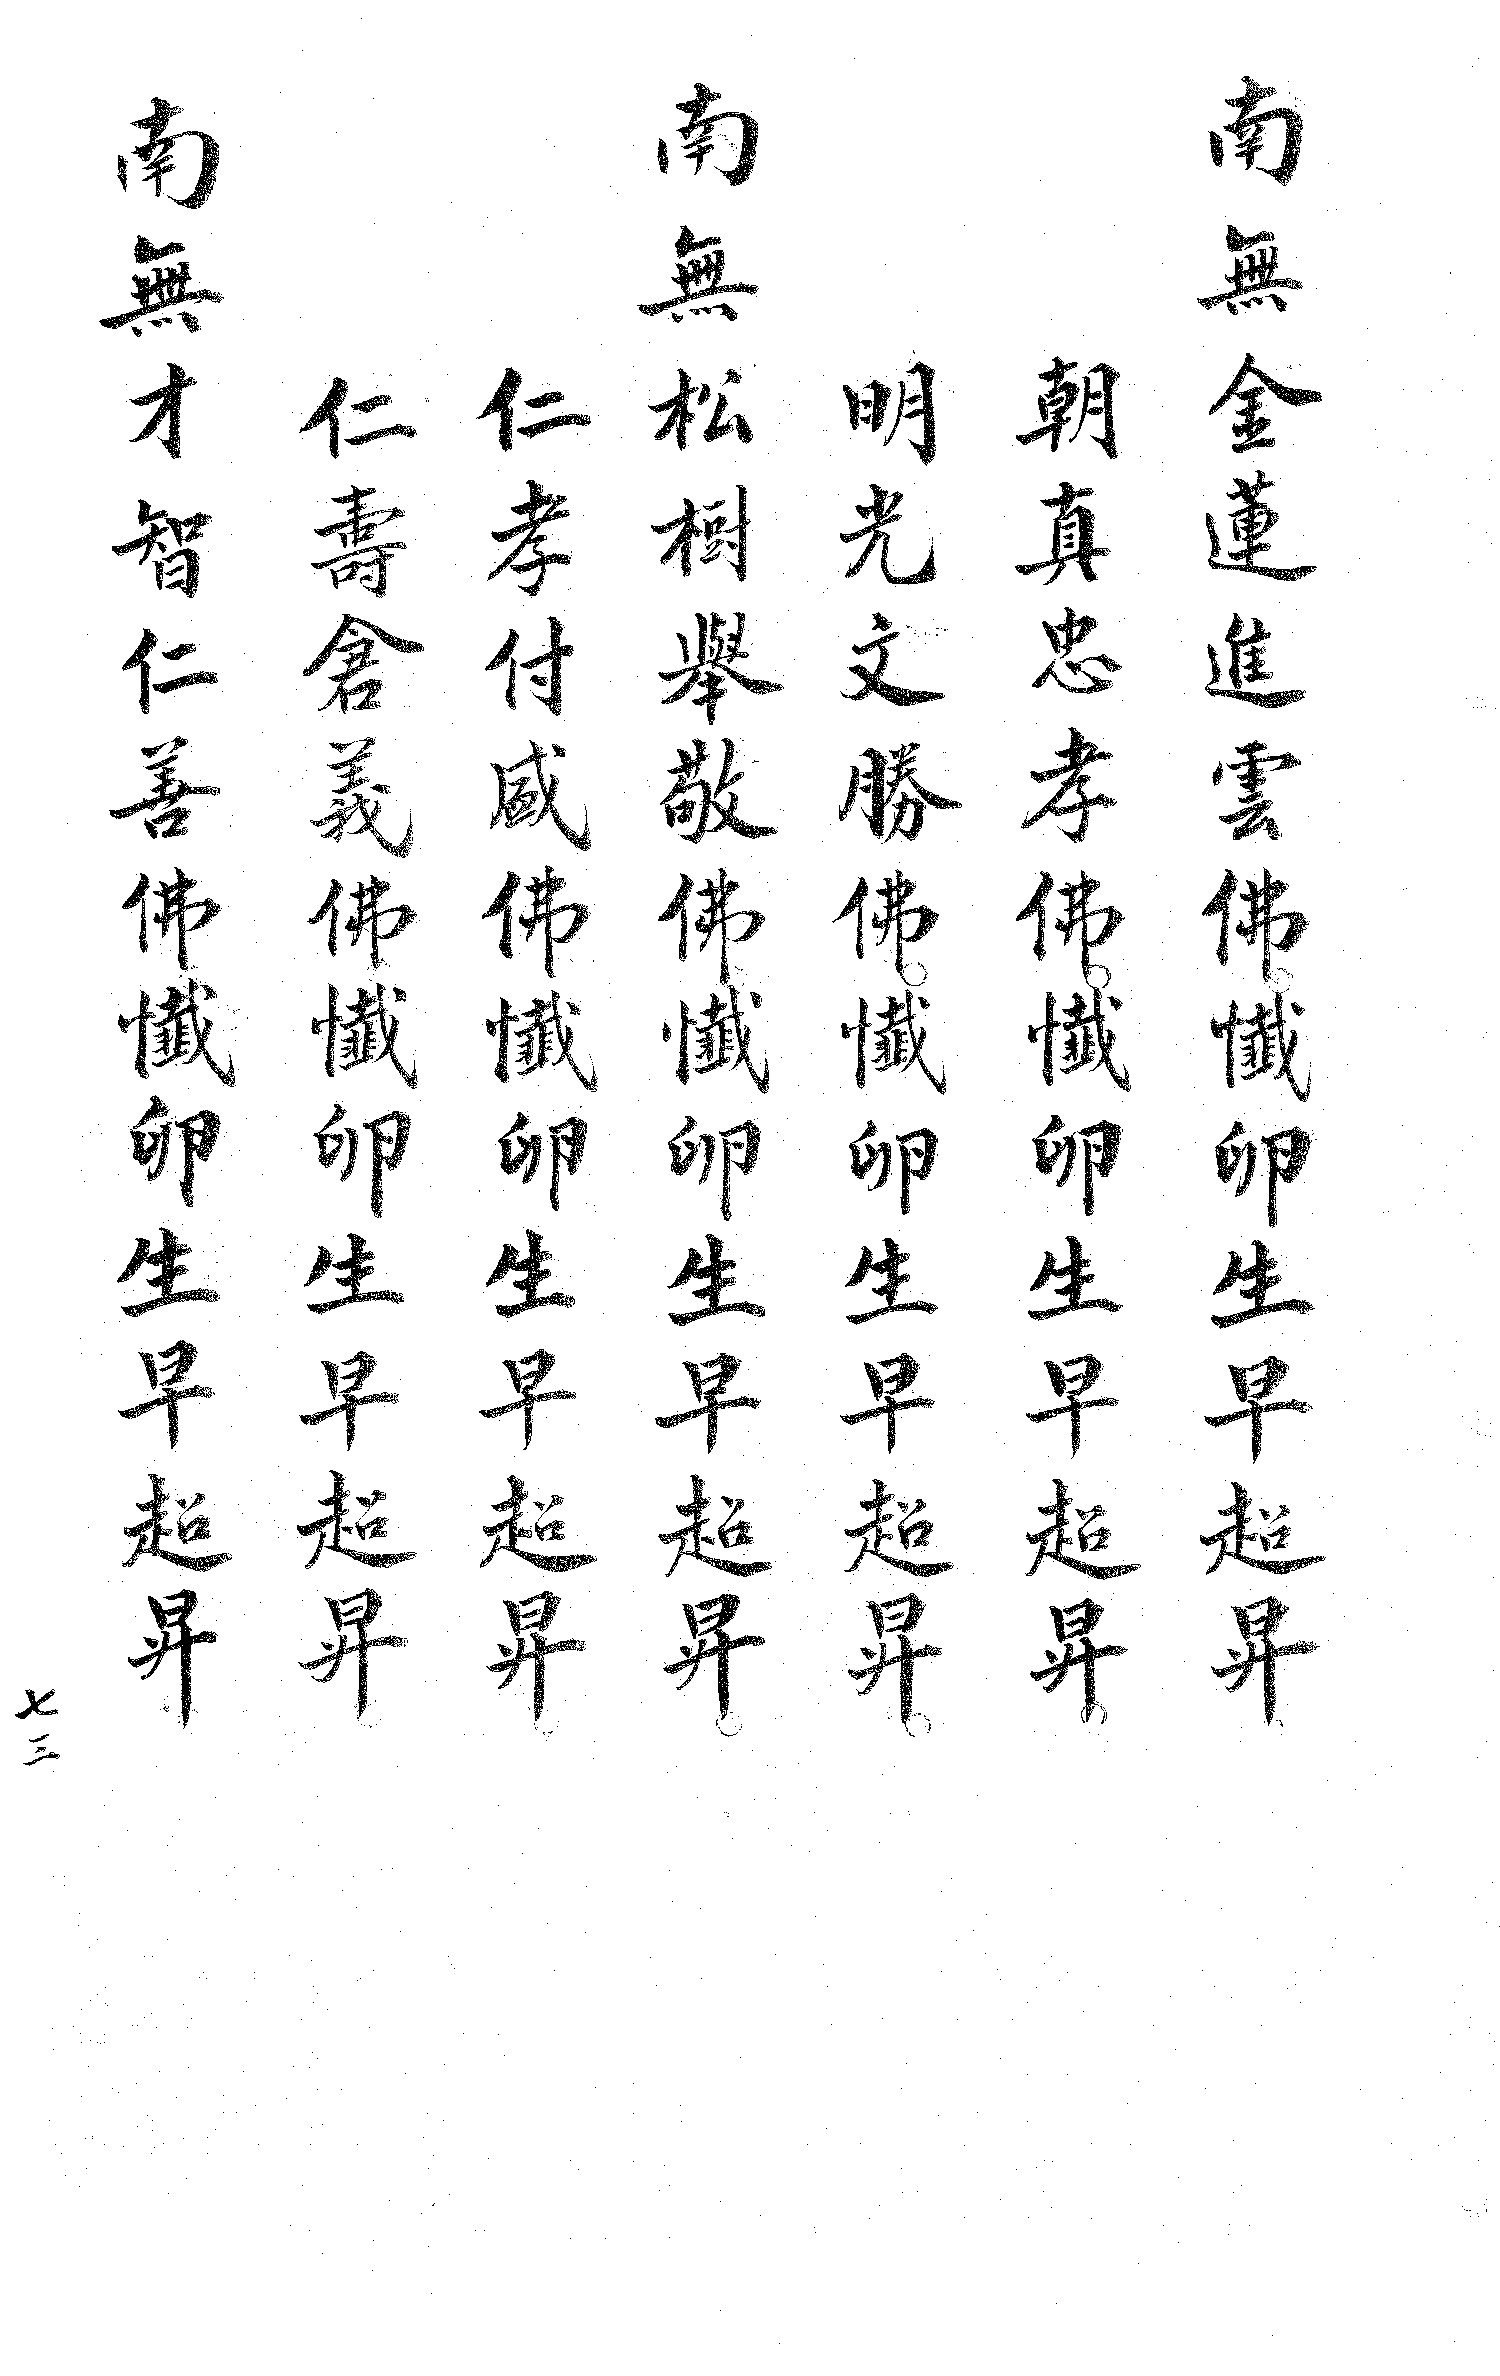 南無金蓮進雲佛。懺卵生早超昇。
朝真忠孝佛。懺卵生早超昇。
明光文勝佛。懺卵生早超昇。
南無松樹舉敬佛。懺卵生早超昇。
仁孝付感佛懺卵生早超昇。
仁壽倉義佛懺卵生早超昇。
南無才智仁善佛懺卵生早超昇。
七三